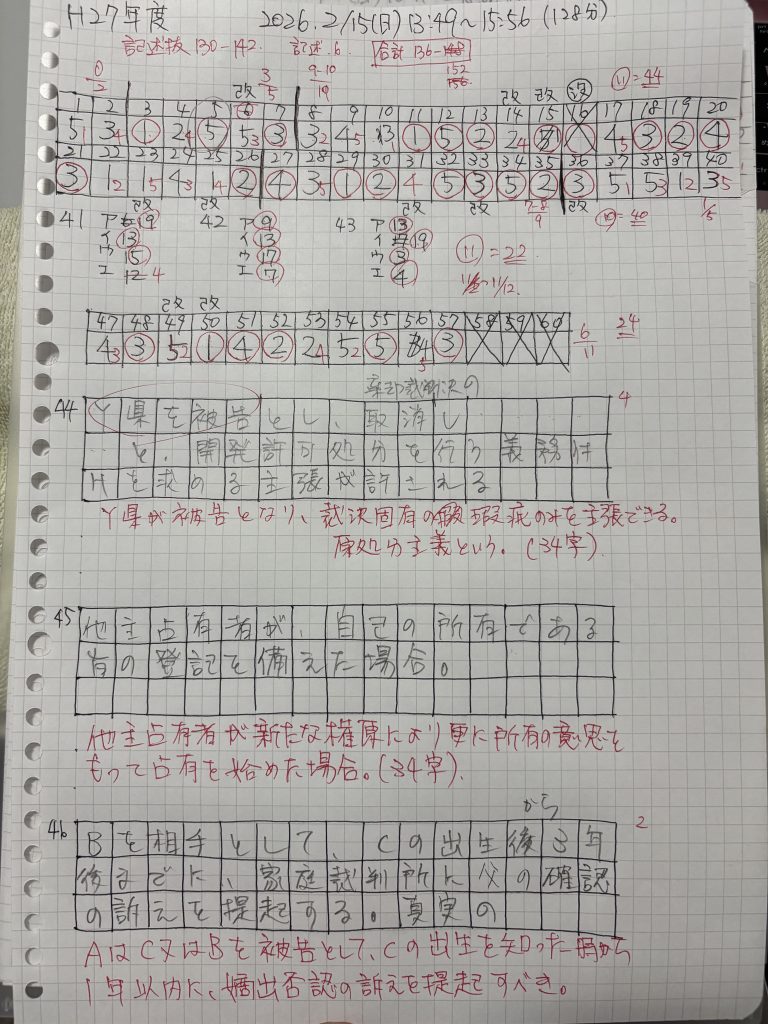 H27年度 2026.2/15(日) 13:49~15:56 (128分)
記述抜 130-142. 記述.6 合計 136-148
152
0/2 改 3/5 9-10/19 改 改 没 ⑪=44
1 2 3 4 5 6 7 8 9 10 11 12 13 14 15 16 17 18 19 20
5₁ 3₄ ① 2₄ ⑤ 5₃ ③ 3₂ 4₅ ① ⑤ ② 2₄ 4₅ ③ ② ④
21 22 23 24 25 26 27 28 29 30 31 32 33 34 35 36 37 38 39 40
③ 1₂ 1₅ 4₃ 1₄ ② ④ 3₅ ① ② 4 ⑤ ③ ⑤ ② ③ 5₁ 5₃ 1₂ 3₅
改 改 改 改 7-8/9 改 ⑩=40 1/5
41 ア ⑲ 42 ア ⑨ 43 ア ⑬
イ ⑬ イ ⑬ イ ⑲
ウ ⑮ ウ ⑰ ウ ③ ⑪=22
エ 12 4 エ ⑦ エ ④ 11/12.
改 改
47 48 49 50 51 52 53 54 55 56 57 58 59 60
4₃ ③ 5₂ ① ④ ② 2₄ 5₂ ⑤ ③ 6/11 24
棄却裁決の
44 Y県を被告とし、取消し 4
と、開発許可処分を行う義務付
けを求める主張が許される
Y県が被告となり、裁決固有の瑕疵のみを主張できる。
原処分主義という。(34字).
45 他主占有者が、自己の所有である
旨の登記を備えた場合。
他主占有者が新たな権原により更に所有の意思を
もって占有を始めた場合。(34字).
から
46 Bを相手として、Cの出生後3年 2
後までに、家庭裁判所に父の確認
の訴えを提起する。真実の
AはC又はBを被告として、Cの出生を知った時から
1年以内に、嫡出否認の訴えを提起すべき。